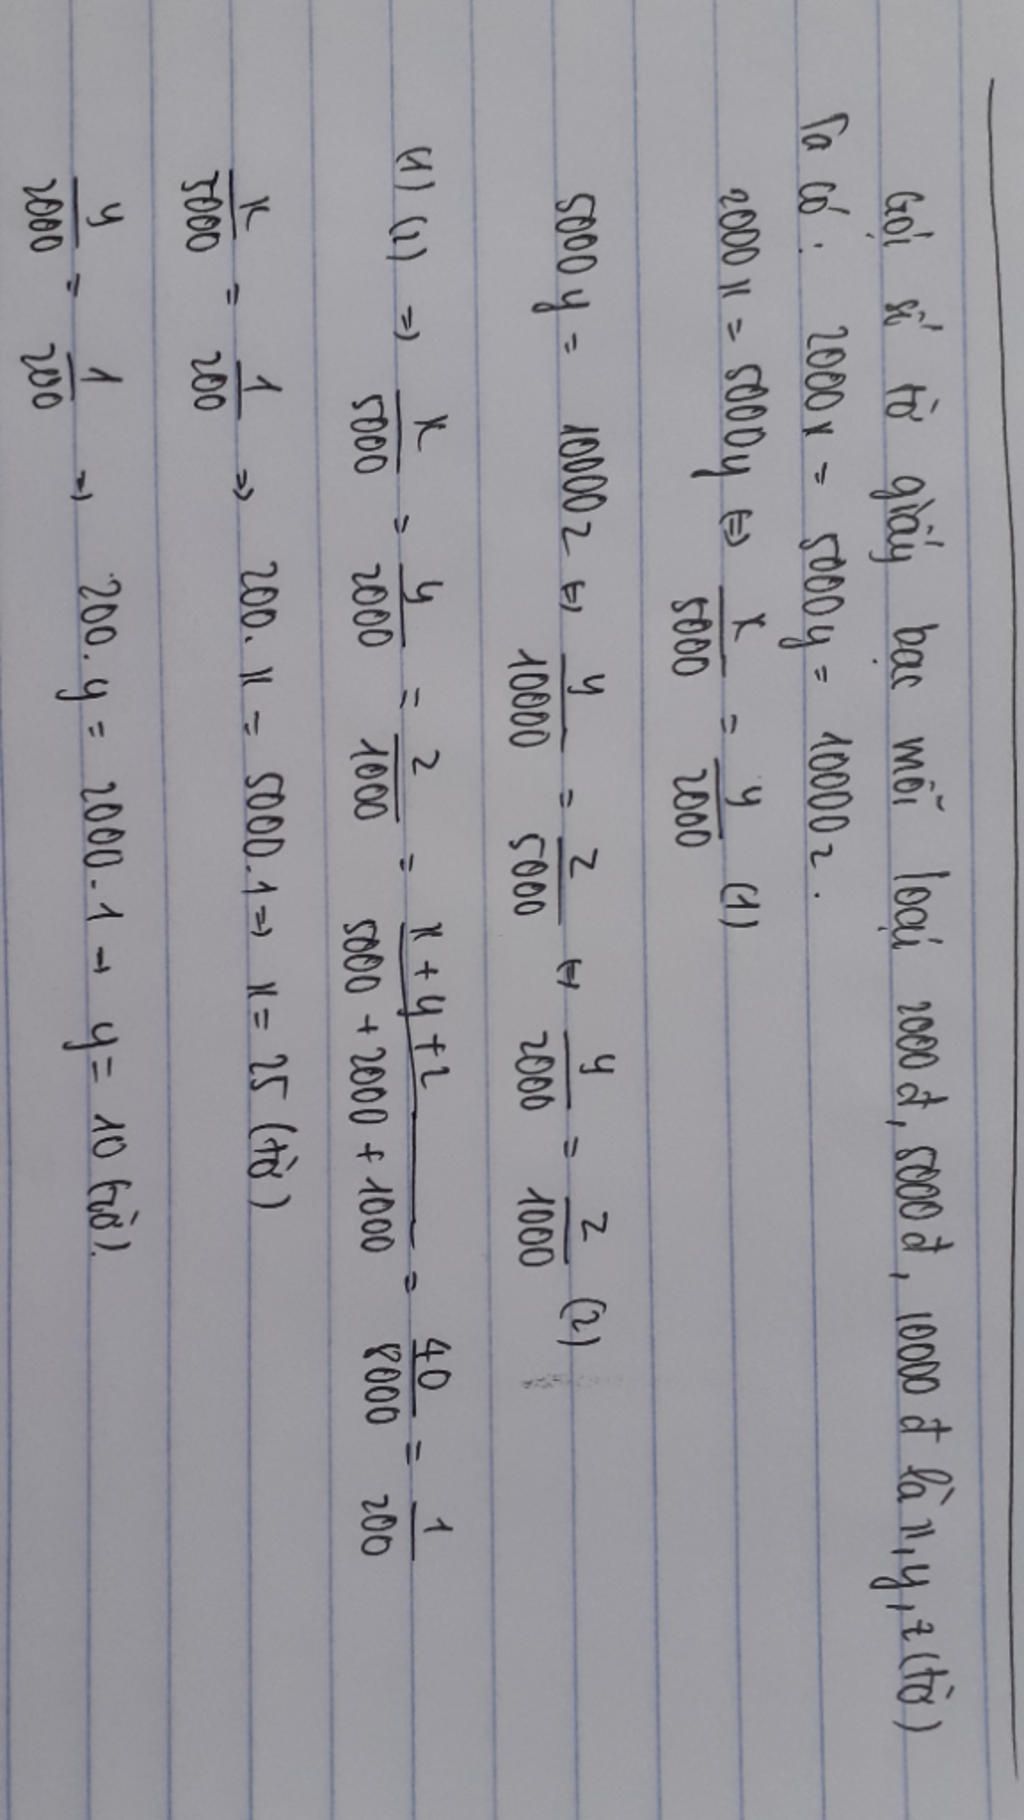 Gọi số tờ giấy bạc mỗi loại 2000đ, 5000đ, 10000đ là x, y, z (tờ)
Ta có: 2000x = 5000y = 10000z.
2000x = 5000y ⇔ x/5000 = y/2000 (1)
5000y = 10000z ⇔ y/10000 = z/5000 ⇔ y/2000 = z/1000 (2)
(1) (2) ⇒ x/5000 = y/2000 = z/1000 = x+y+z/5000+2000+1000 = 40/8000 = 1/200
x/5000 = 1/200 ⇒ 200.x = 5000.1 ⇒ x = 25 (tờ)
y/2000 = 1/200 ⇒ 200.y = 2000.1 → y = 10 (tờ).